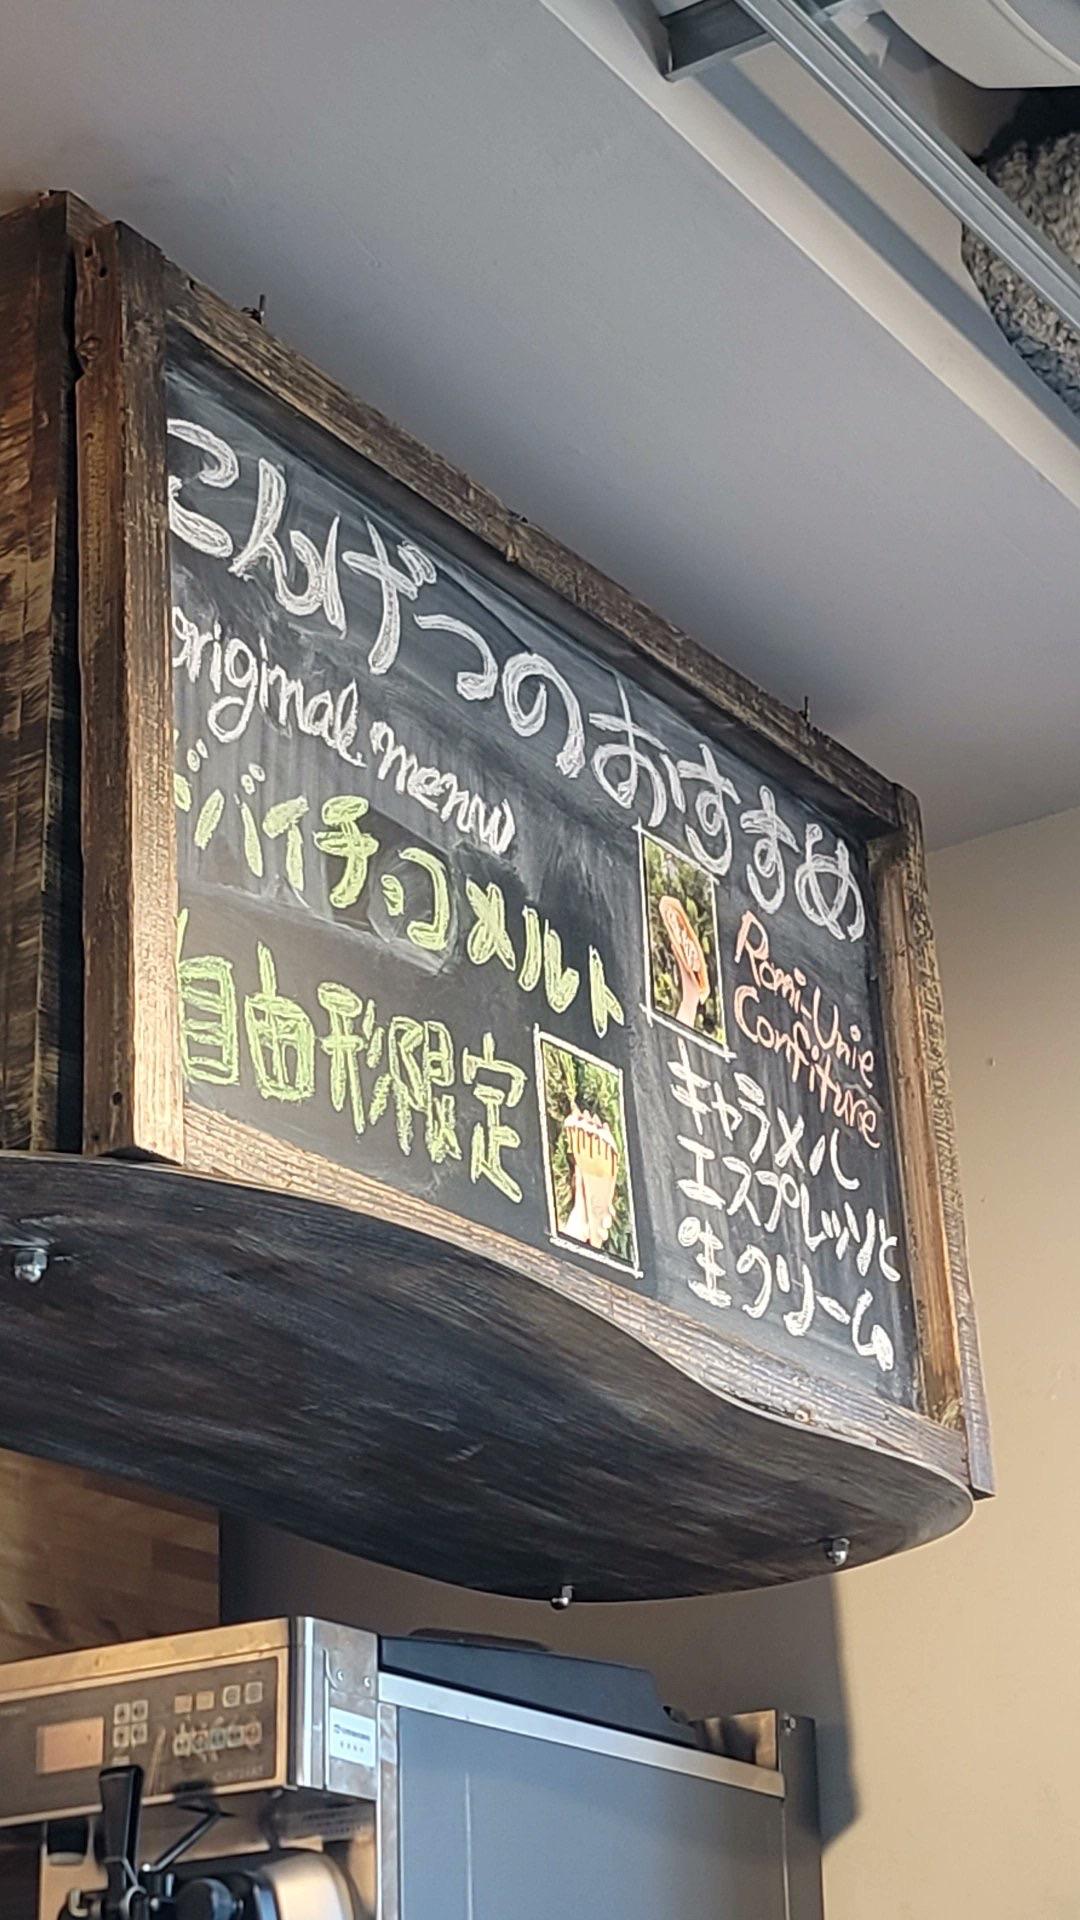 こんげつのおすすめ
original menu
ドバイチョコメルト
自由形限定
Romi-Unie
Confiture
キャラメル
エスプレッソと
生クリーム